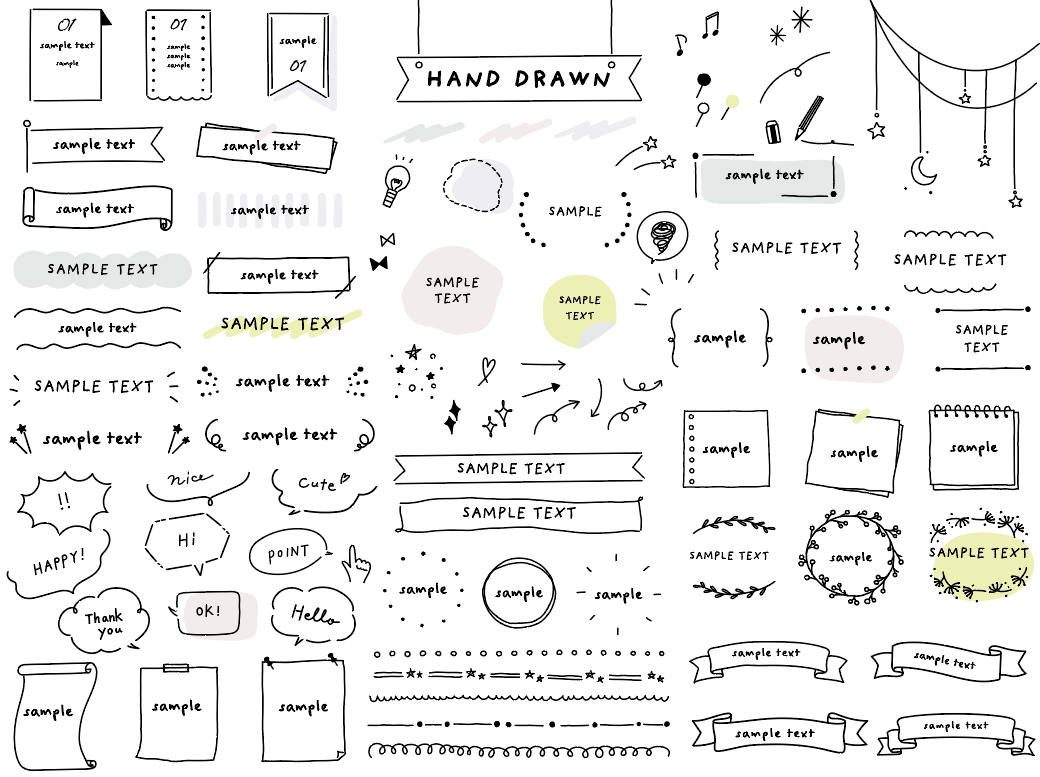 01
sample text
sample
01
sample
sample
sample
sample
01
HAND DRAWN
sample text
sample text
sample text
sample text
SAMPLE TEXT
sample text
sample text
SAMPLE TEXT
SAMPLE TEXT
sample text
sample text
sample text
SAMPLE
SAMPLE
TEXT
SAMPLE
TEXT
sample text
SAMPLE TEXT
SAMPLE TEXT
sample
sample
SAMPLE
TEXT
sample
sample
sample
!!
nice
Cute
HAPPY!
Hi
POINT
Thank
you
OK!
Hello
SAMPLE TEXT
SAMPLE TEXT
sample
sample
sample
SAMPLE TEXT
sample
SAMPLE TEXT
sample
sample
sample
sample text
sample text
sample text
sample text